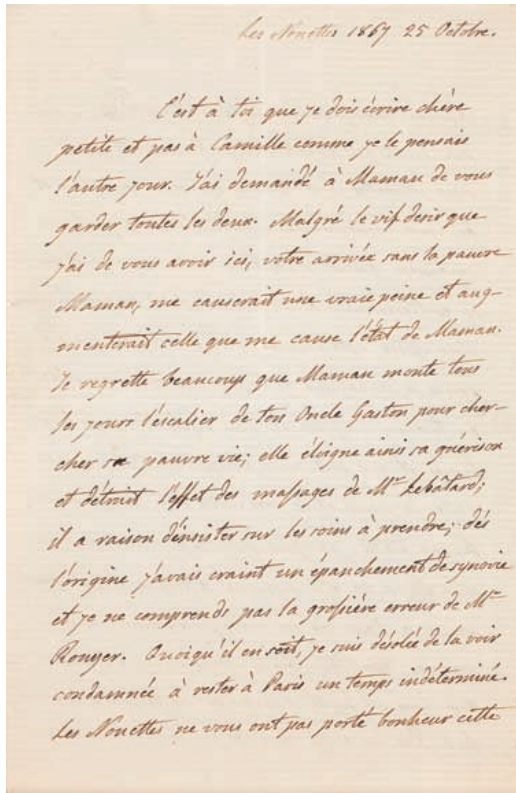 Les Nouettes 1867 25 Octobre.
C'est à toi que je dois écrire chère
petite et pas à Camille comme je le pensais
l'autre jour. J'ai demandé à Maman de vous
garder toutes les deux. Malgré le vif desir que
j'ai de vous avoir ici, votre arrivée sans la pauvre
Maman, me causerait une vraie peine et aug-
menterait celle que me cause l'état de Maman.
Je regrette beaucoup que Maman monte tous
les jours l'escalier de ton Oncle Gaston pour cher-
cher sa pauvre vie; elle éloigne ainsi sa guérison
et détruit l'effet des massages de Mr Lebâtard;
il a raison d'insister sur les soins à prendre; dès
l'origine j'avais craint un épanchement de synovie
et je ne comprends pas la grossière erreur de Mr
Rouyer. Quoiqu'il en soit, je suis désolée de la voir
condamnée à rester à Paris un temps indéterminé.
Les Nouettes ne vous ont pas porté bonheur cette